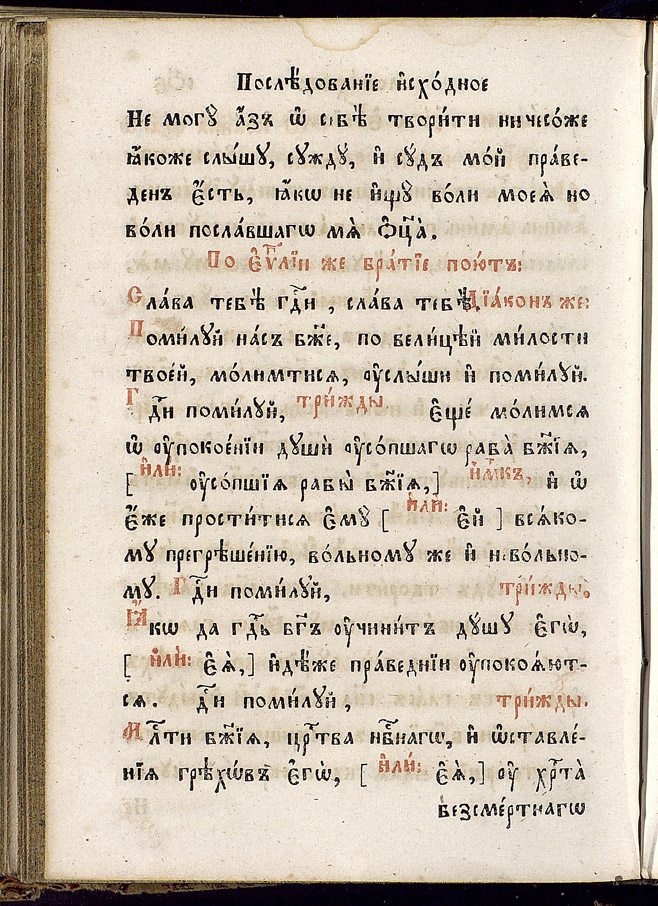 Послѣ́дованїе и҆схо́дное
Не могꙋ̀ а҆́зъ ѿ себѐ твори́ти ничесо́же
ꙗ҆́коже слы́шꙋ, сꙋждꙋ̀, и҆ сꙋ́дъ мо́й пра́ве-
денъ є҆́сть, ꙗ҆́кѡ не и҆щꙋ̀ во́ли моеѧ̀ но
во́ли посла́вшагѡ мѧ̀ ѻ҆ц҃а̀.
По є҆ѵⷢ҇лїи же бра́тїе пою́тъ:
Сла́ва тебѣ̀ гдⷭ҇и , сла́ва тебѣ̀. Дїа́конъ же:
Поми́лꙋй на́съ бж҃е, по вели́цѣй ми́лости
твое́й, мо́лимтисѧ, ᲂу҆слы́ши и҆ поми́лꙋй.
Гдⷭ҇и поми́лꙋй, три́жды Є҆щѐ мо́лимсѧ
ѡ҆ ᲂу҆покое́нїи дꙋшѝ ᲂу҆со́пшагѡ раба̀ бж҃їѧ,
[ и҆лѝ: ᲂу҆со́пшїѧ рабы̀ бж҃їѧ,] и҆́мкъ, и҆ ѡ҆
є҆́же прости́тисѧ є҆мꙋ̀ [ и҆лѝ: є҆́й ] всѧ́ко-
мꙋ прегрѣше́нїю, во́льномꙋ же и҆ нево́льно-
мꙋ. Гдⷭ҇и поми́лꙋй, три́жды.
Ꙗ҆́кѡ да гдⷭ҇ь бг҃ъ ᲂу҆чини́тъ дꙋ́шꙋ є҆гѡ̀,
[ и҆лѝ: є҆ѧ̀,] и҆дѣ́же пра́веднїи ᲂу҆покоѧ́ют-
сѧ. Гдⷭ҇и поми́лꙋй , три́жды.
Млⷭ҇ти бж҃їѧ, црⷭ҇тва нбⷭ҇нагѡ, и҆ ѡ҆ставле́-
нїѧ грѣхѡ́въ є҆гѡ̀, [ и҆лѝ: є҆ѧ̀,] ᲂу҆ хрⷭ҇та̀
безсме́ртнагѡ